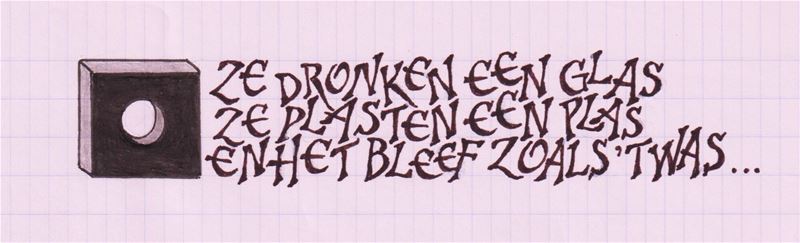 ZE DRONKEN EEN GLAS
ZE PLASTEN EEN PLAS
EN HET BLEEF ZOALS 'T WAS...